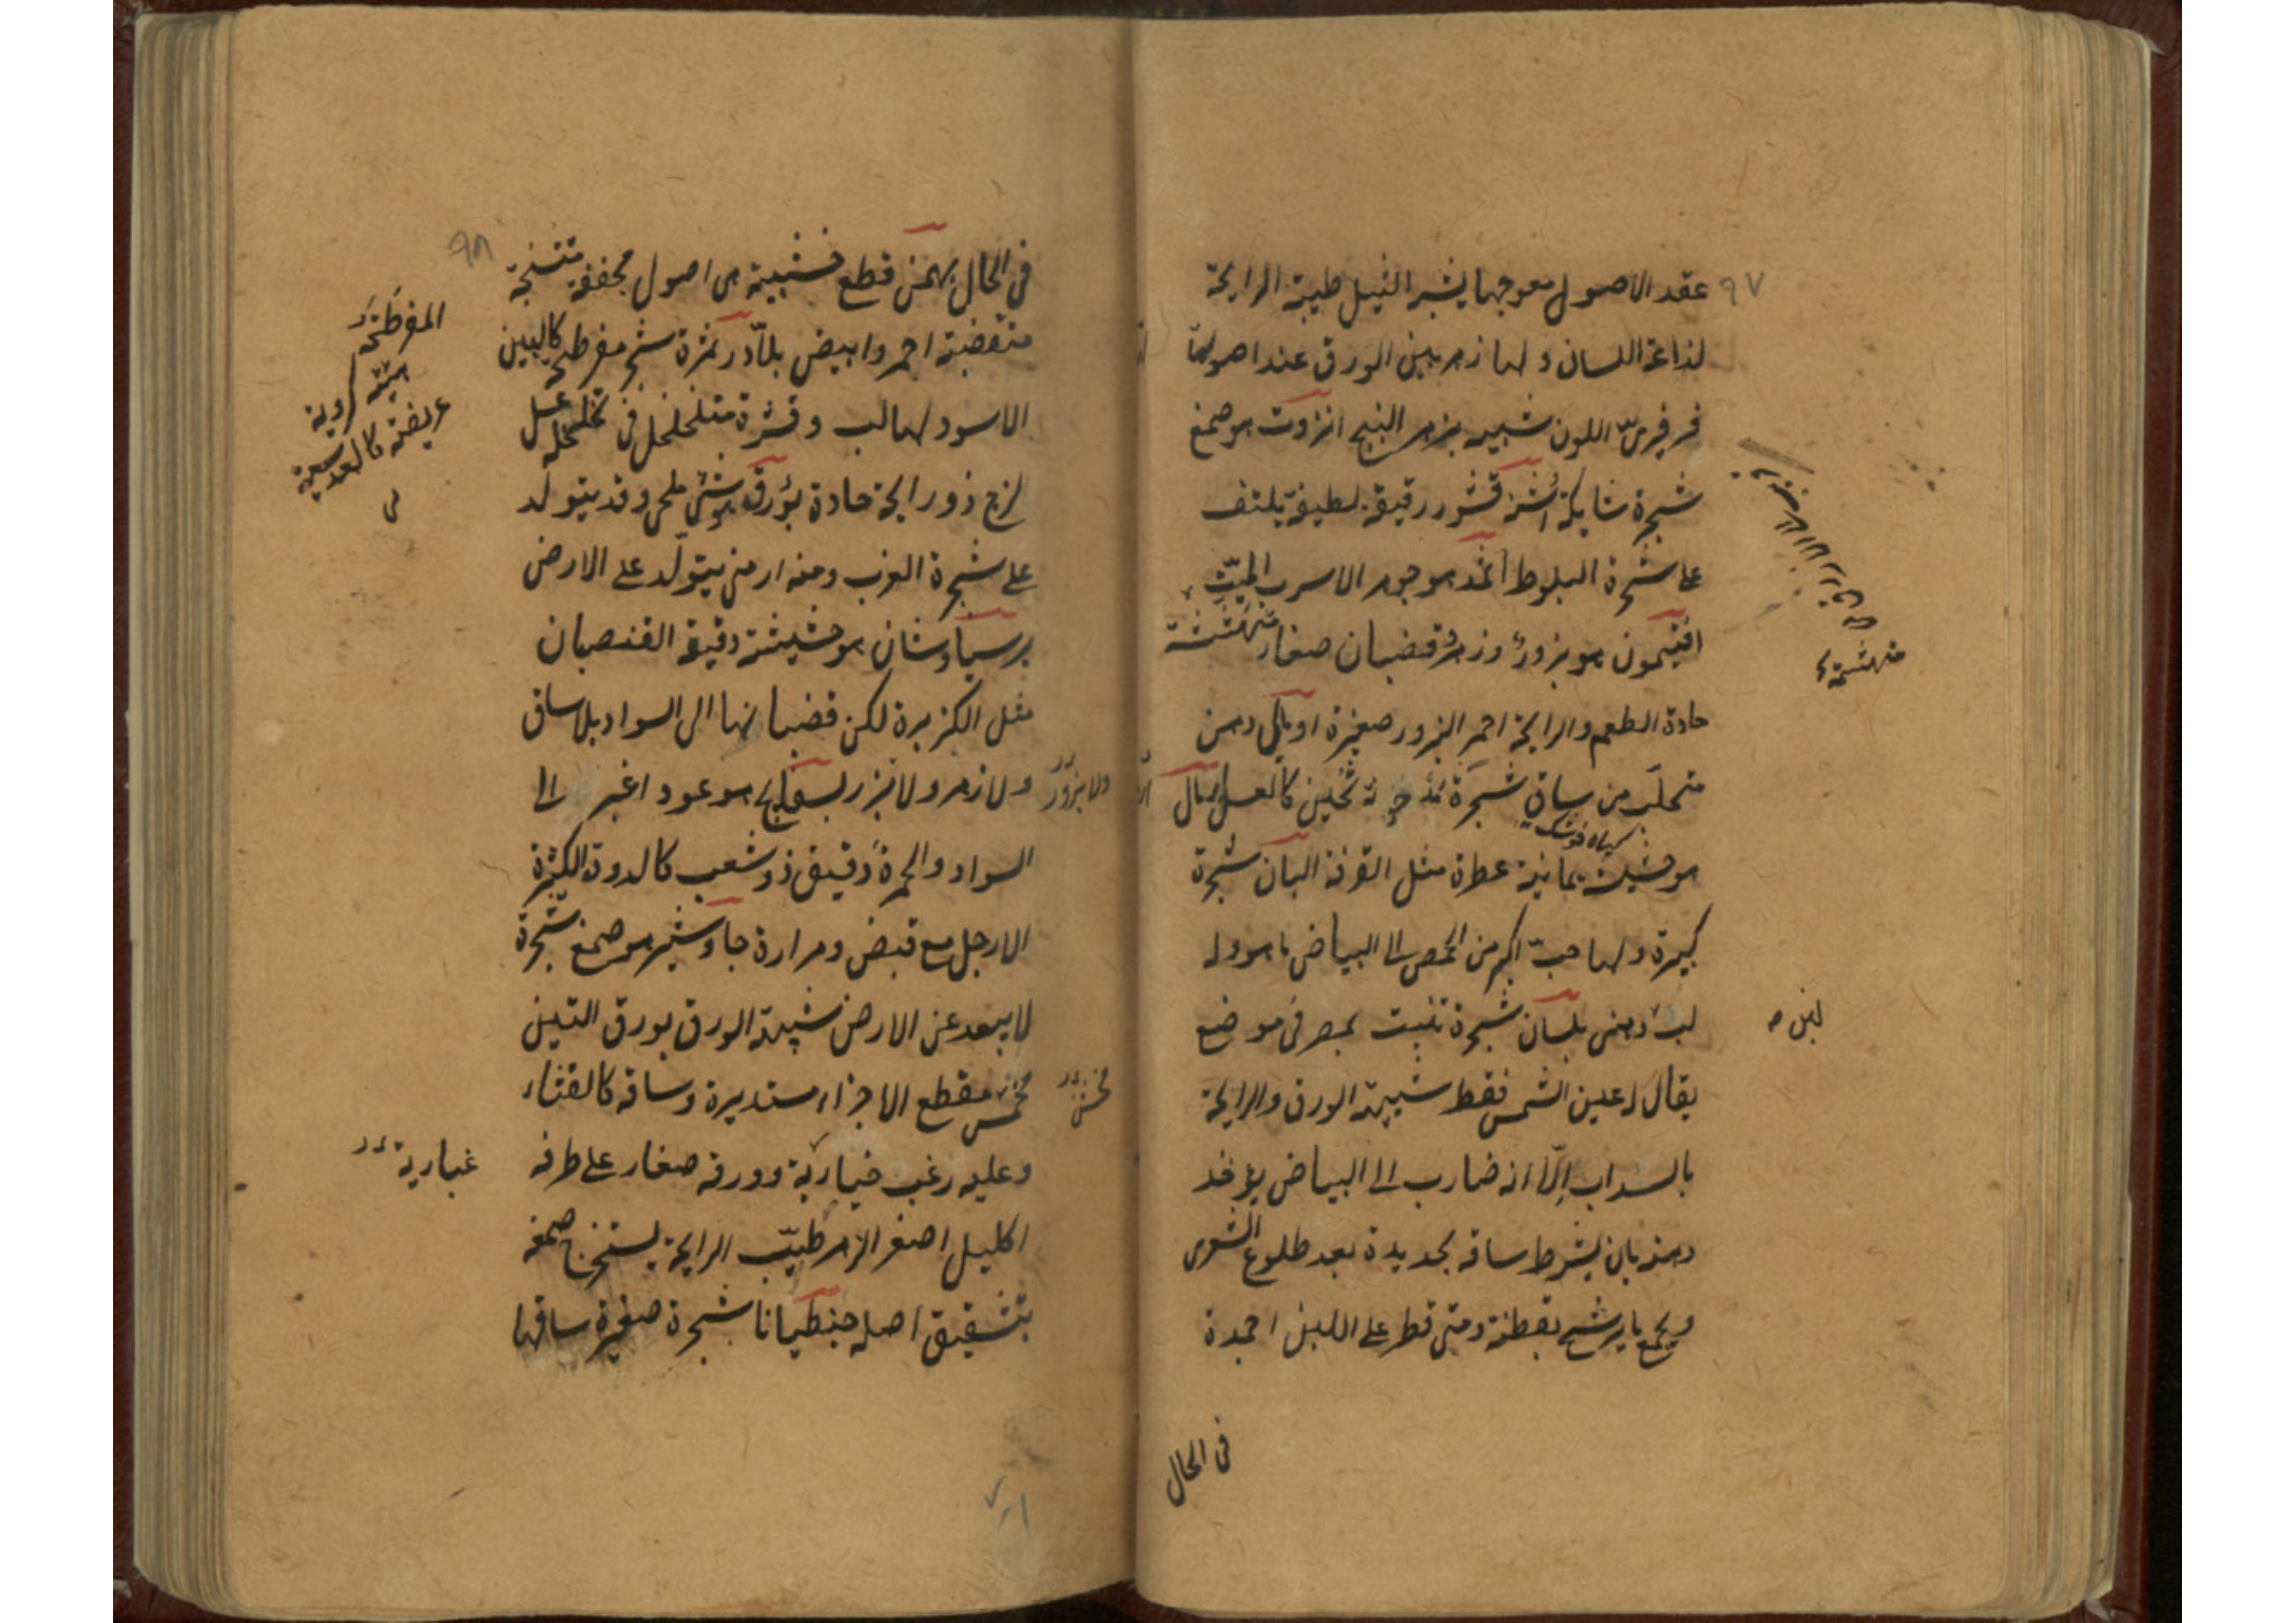 ٩٧
عقد الاصول معوجها يشبه النيل طيبة الرايحة
لذاعة اللسان ولها زهر بين الورق عند اصولها
فرفيرىّ اللون شبيه بزهر البنج انزروت هو صمغ
شجرة شايكة أشنه قشور رقيقة لطيفة يلتف
على شجرة البلوط اثمد هو جوهر الاسرب الميّت
افتيمون هو بزور وزهر وقضبان صغار متهشمة
حادة الطعم والرايحة احمر البزور صغيرة اومالى دهن
متحلب من ساق شجرة ثخين كالعسل
هو خشب يمانية عطرة مثل القرفة البان شجرة
كبيرة ولها حبّ اكبر من الحمص الى البياض ما هو وله
لب دهنى بلسان شجرة تنبت بمصر فى موضع
يقال له عين الشمس فقط شبيهة الورق والرايحة
بالسداب الّا انه ضارب الى البياض يؤخذ
دهنه بان يشرط ساقه بحديدة بعد طلوع الشعرى
ويجمع ما يرشح بقطنة ومتى قطر على اللبن اجمده
متهشمة
لبن
فى الحال
٩٨
فى الحال بهمن قطع خشبية هى اصول مجففة متشنجة
متغضنة احمر وابيض بلاّدر ثمرة شجر مفرطح كالبين
الاسود لها لب وقشرة متخلخل فى تخلخله عسل
لزج ذو رايحة حادة بؤرق هو شئ ملحى وقد يتولد
على شجرة الغرب ومنه ارمنى يتولّد على الارض
برسياوشان هو حشيشة دقيقة القضبان
مثل الكزبرة لكن قضبانها الى السواد بلا ساق
ولا زهر ولا بزر بسفايج هو عود اغبر الى
السواد والحمرة دقيق ذو شعب كالدودة الكثيرة
الارجل مع قبض ومرارة جاوشير هو صمغ شجرة
لا يبعد عن الارض شبيهة الورق بورق التين
مخمس مقطع الاجزاء مستديرة وساقه كالقثاء
وعليه زغب غبارية وورقه صغار على طرفه
اكليل اصفر الزهر طيّب الرايحة يستخرج صمغه
بتشقيق اصله جنطيانا شجرة صغيرة ساقها
المفرطحة
عريضة
ولا بزور
غبارية